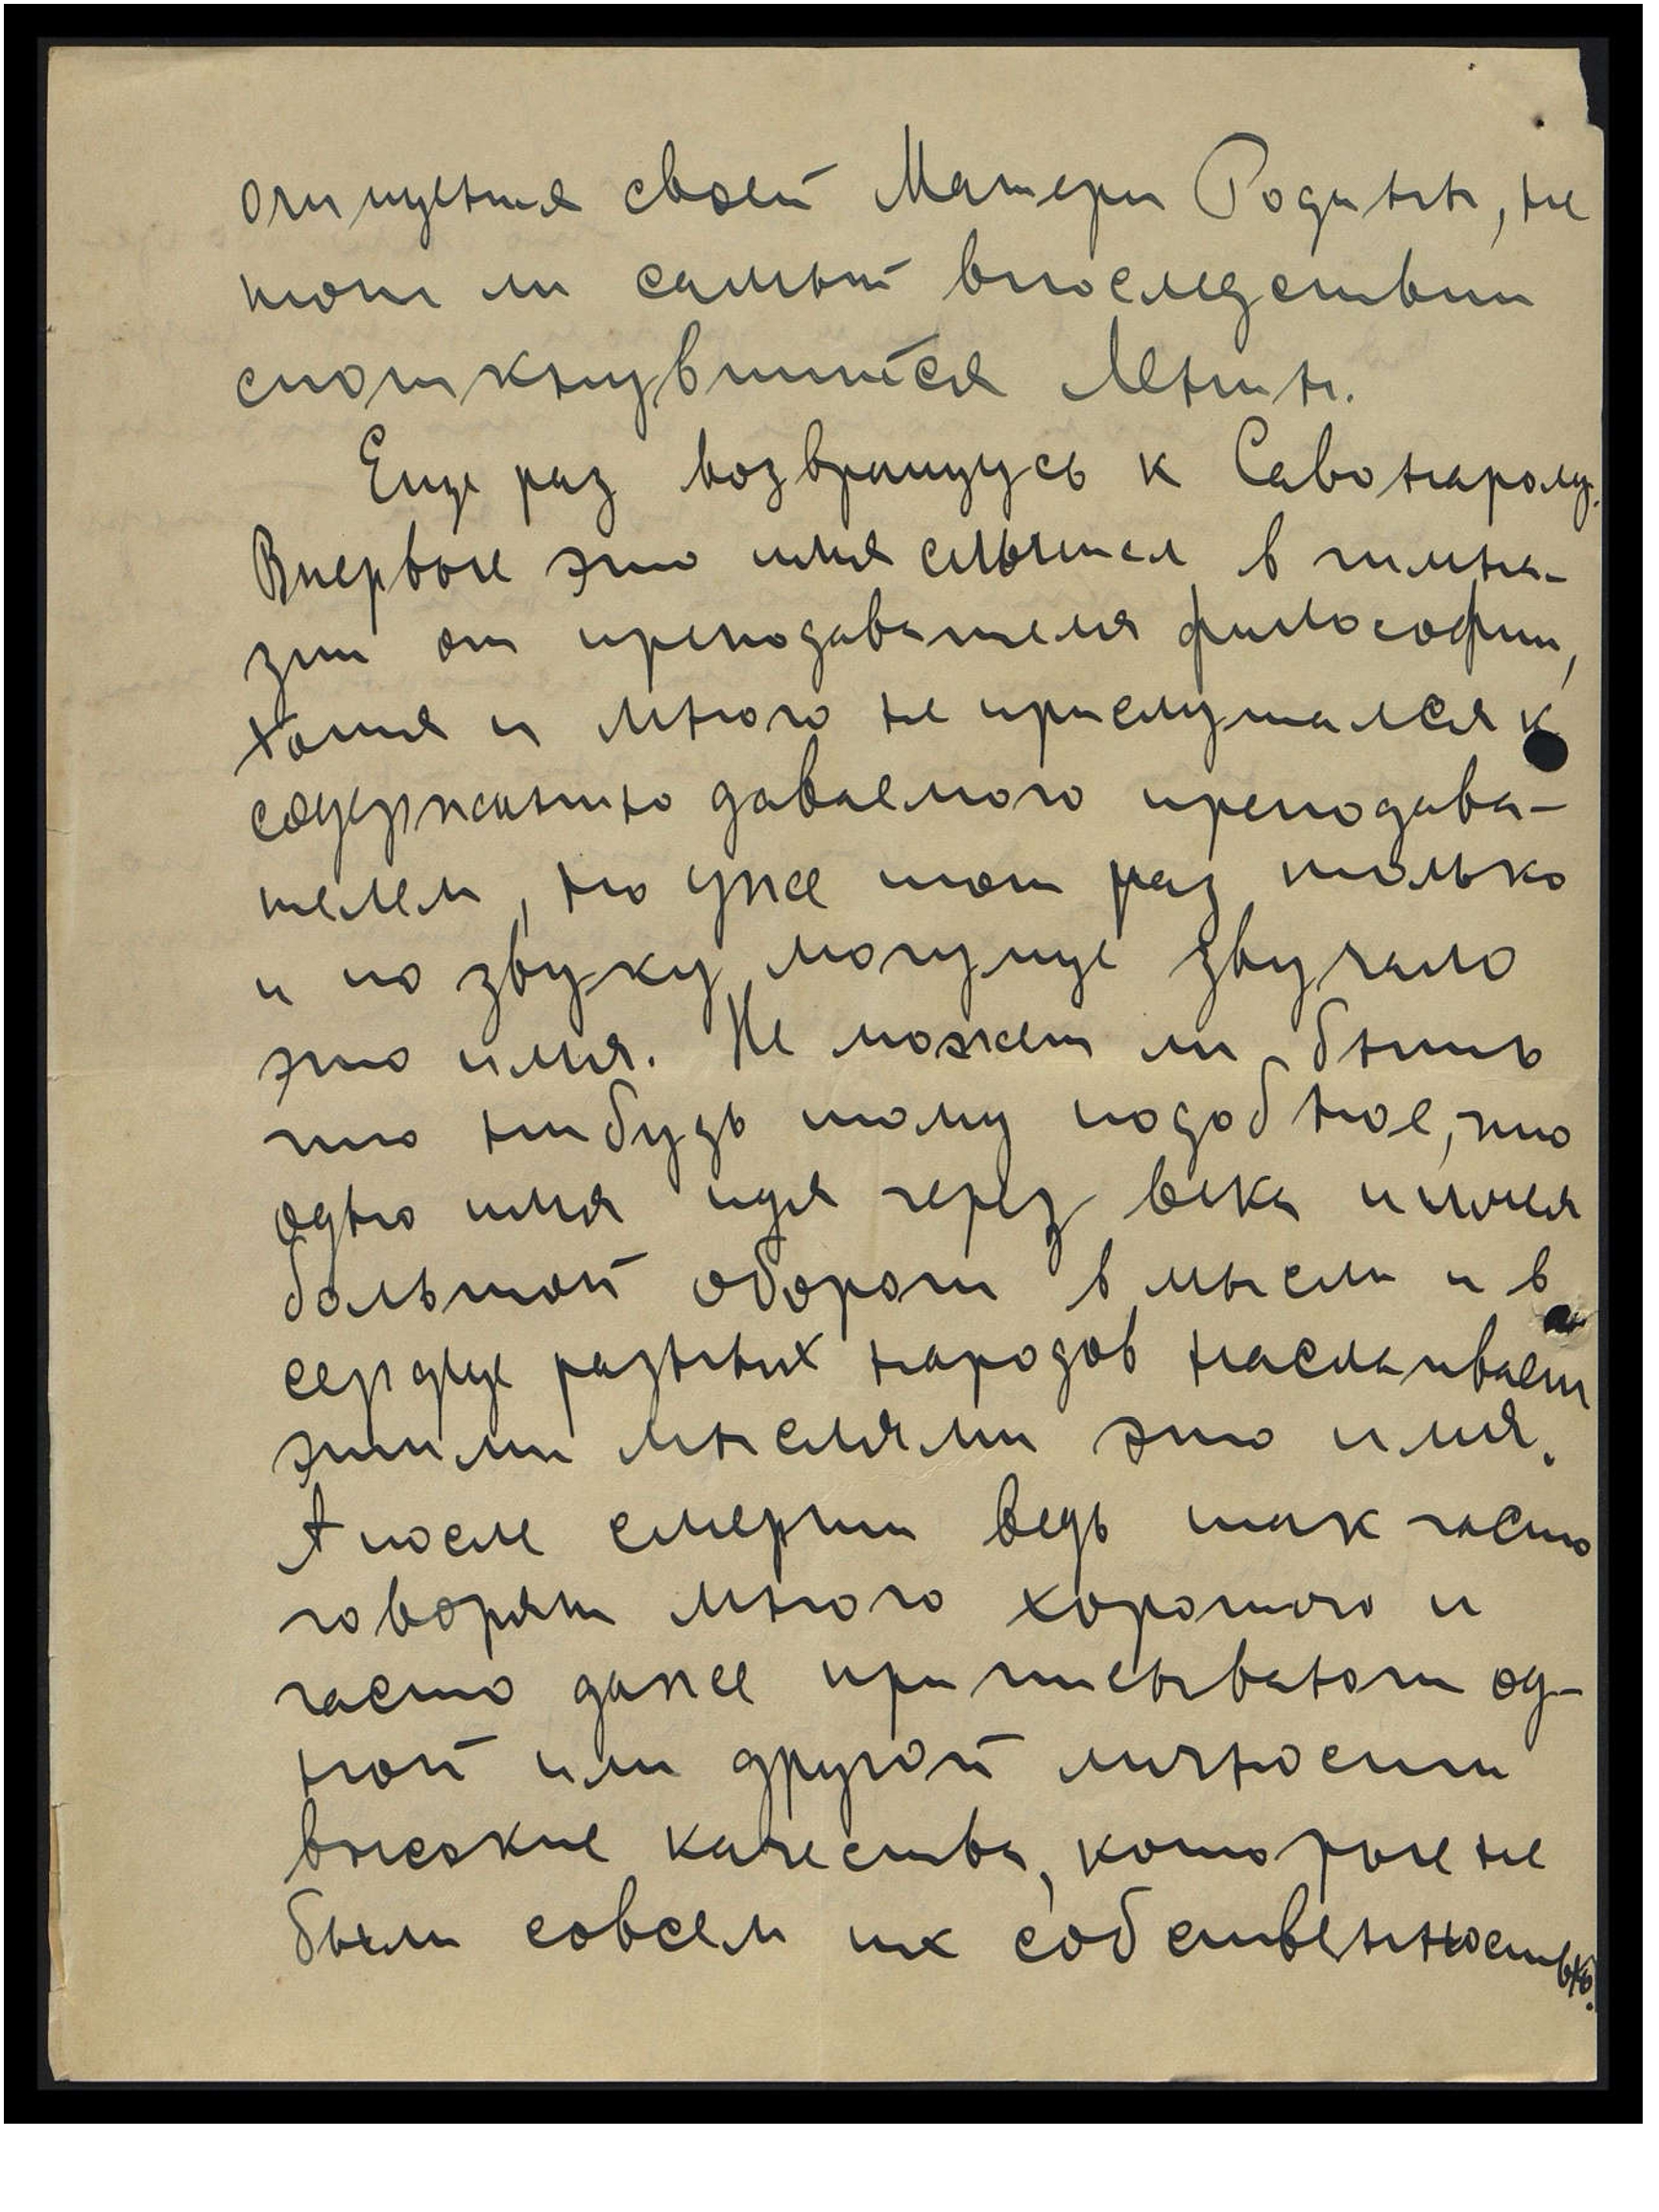 очищения своей Матери Родины, не
тот ли самый впоследствии
споткнувшийся Ленин.
Еще раз возвращусь к Савонаролу.
Впервые это имя слышал в гимна-
зии от преподавателя философии,
хотя и много не прислушался к
содержанию даваемого преподава-
телем, но уже тот раз только
и по звуку могуще звучало
это имя. Не может ли быть
что нибудь тому подобное, что
одно имя идя через века и имея
большой оборот в мысли и в
сердце разных народов наслаивает
этими мыслями это имя.
А после смерти ведь так часто
говорят много хорошого и
часто даже приписывают од-
ной или другой личности
высокие качества, которые не
были совсем их собственностью.